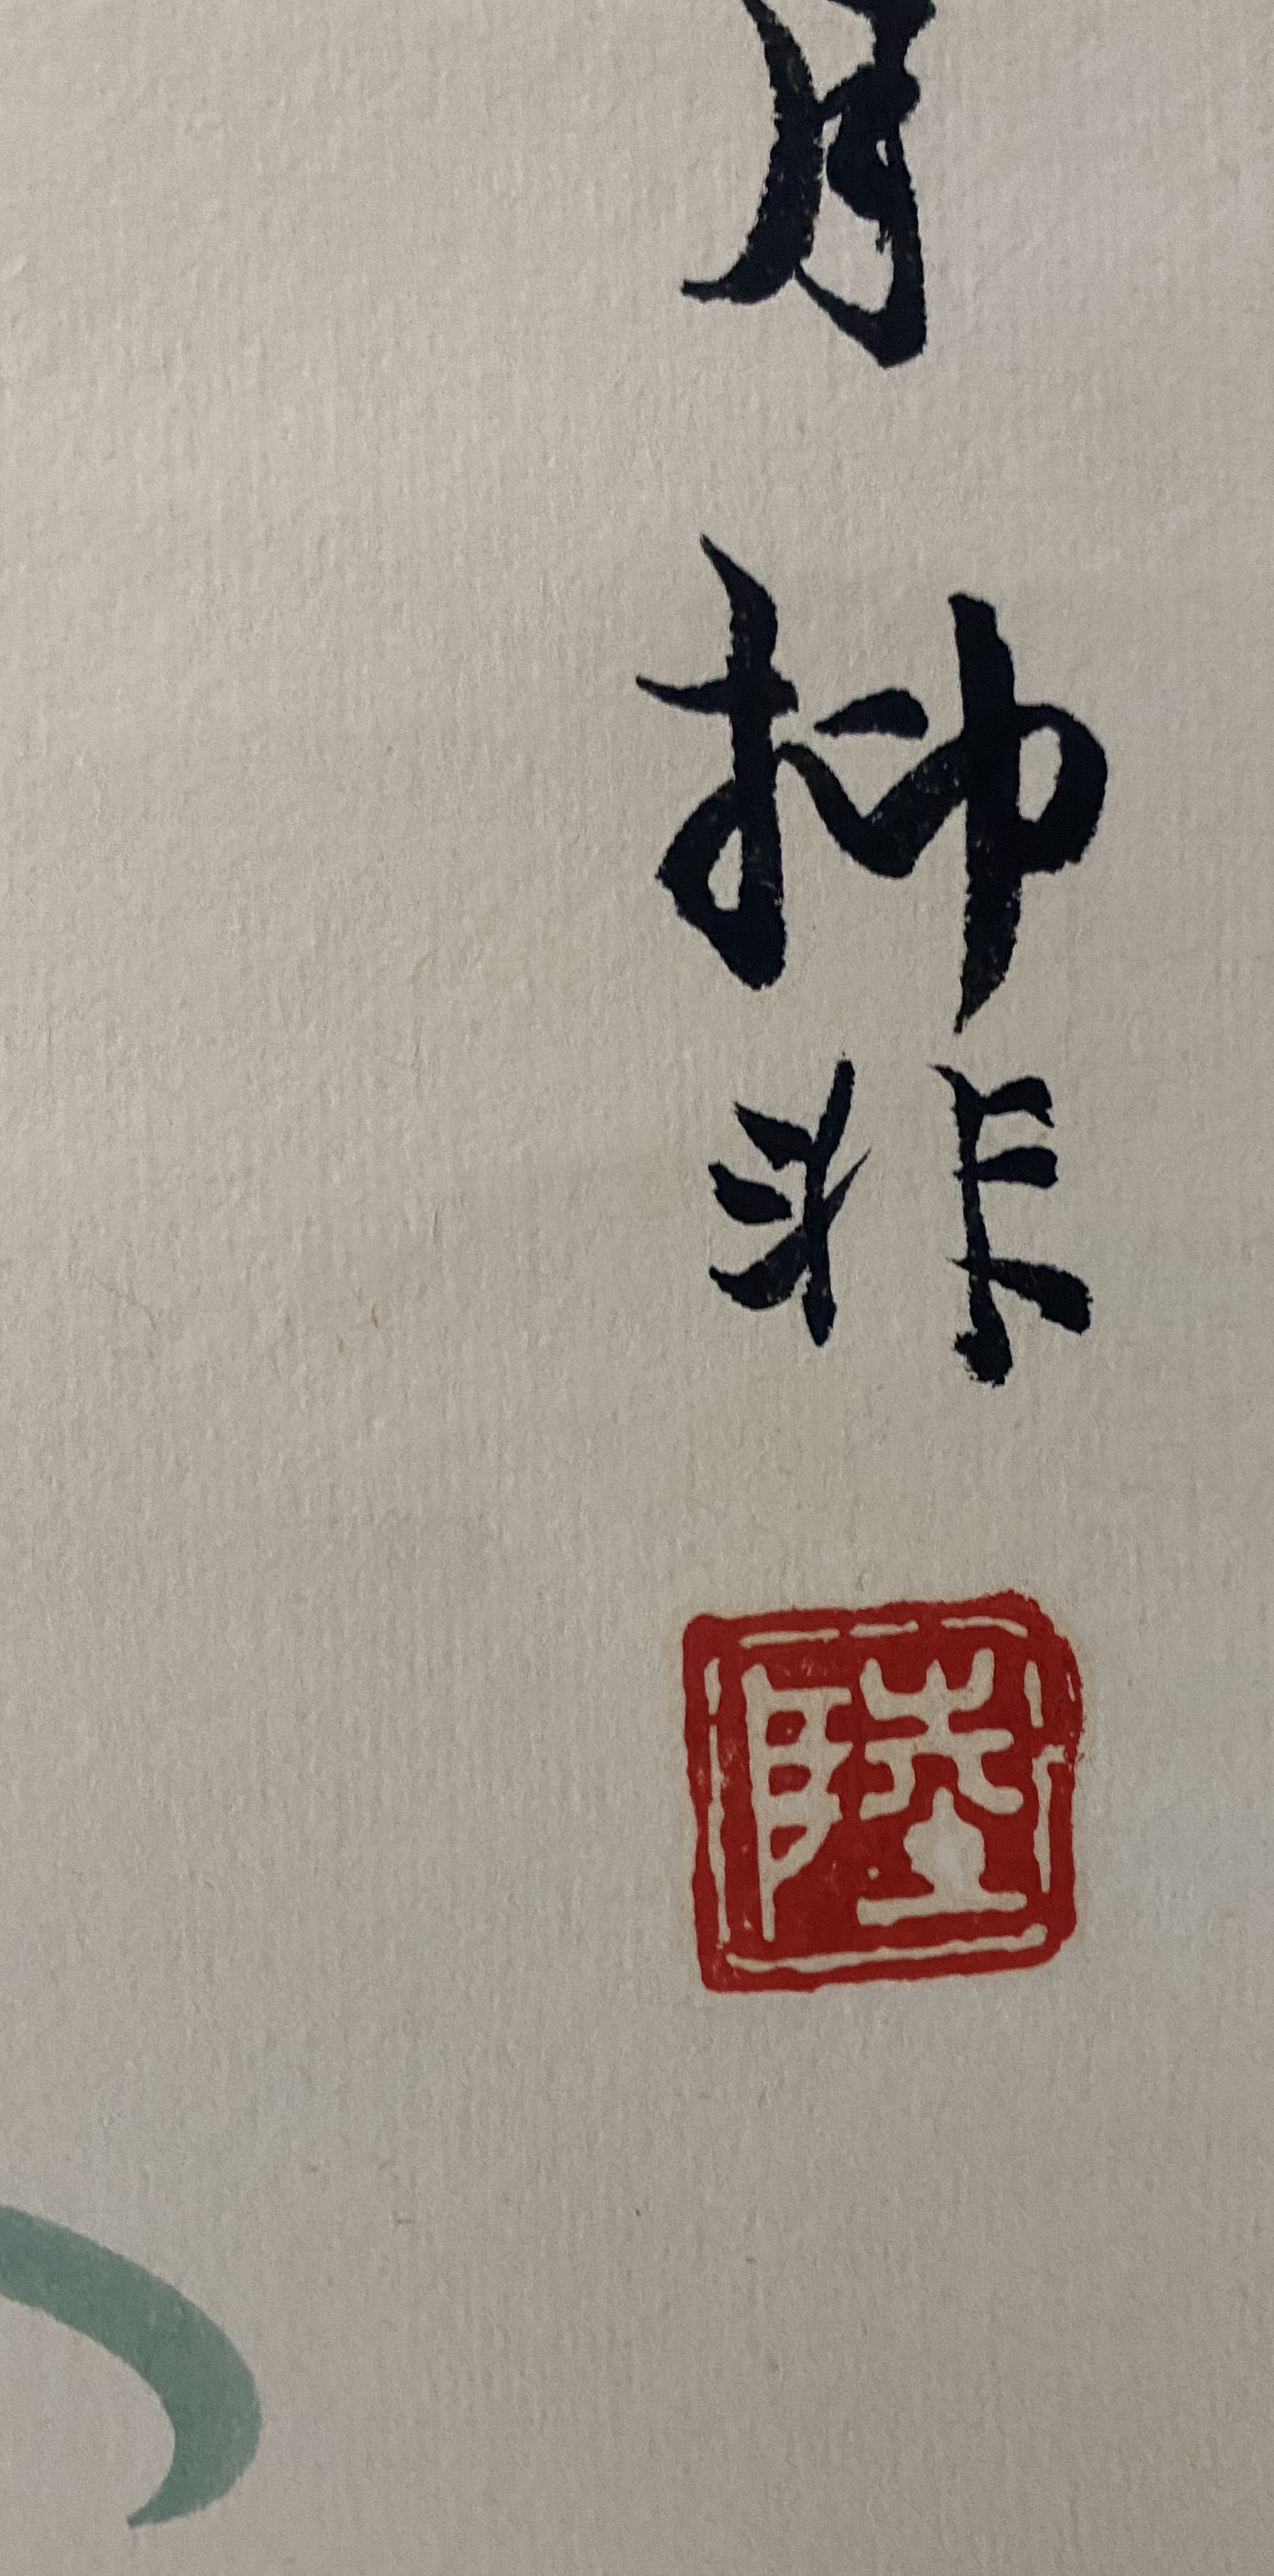 月 抑非
陸